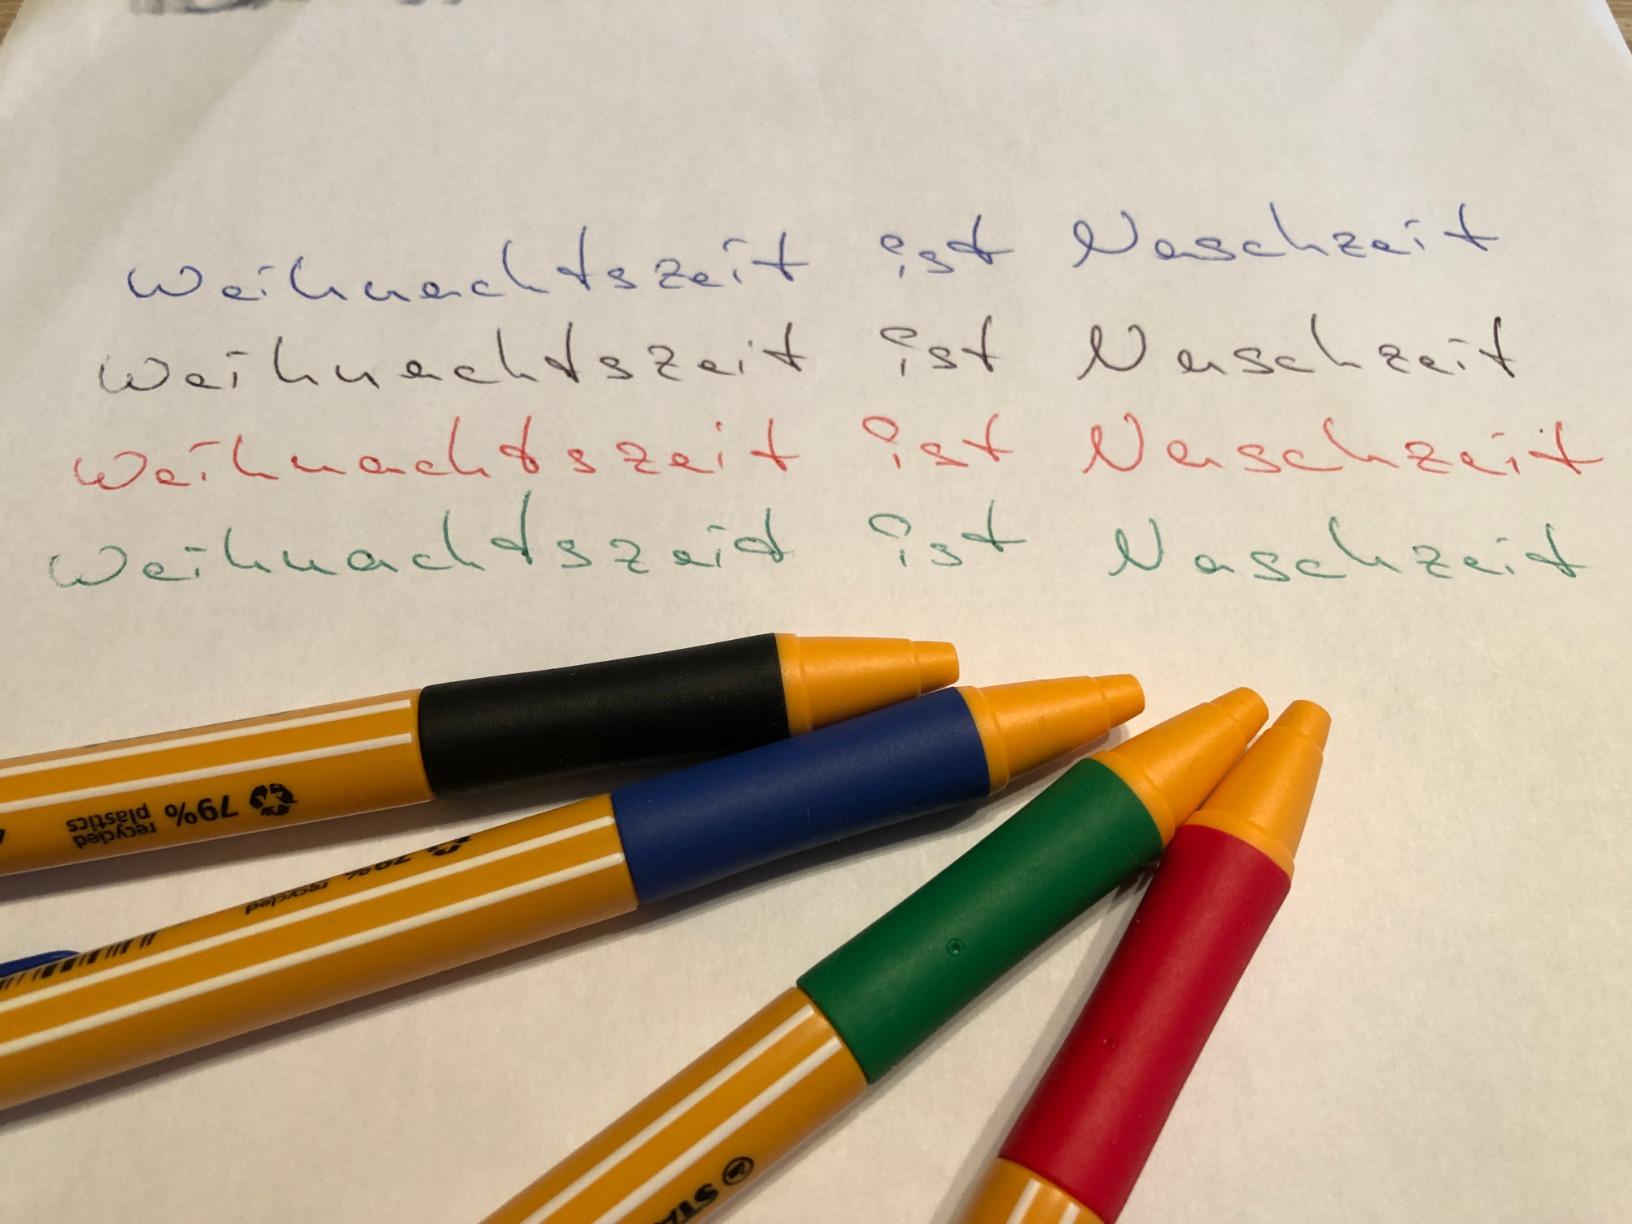 Weihnachtszeit ist Naschzeit
Weihnachtszeit ist Naschzeit
Weihnachtszeit ist Naschzeit
Weihnachtszeit ist Naschzeit
79% recycled
plastics
79% recycled